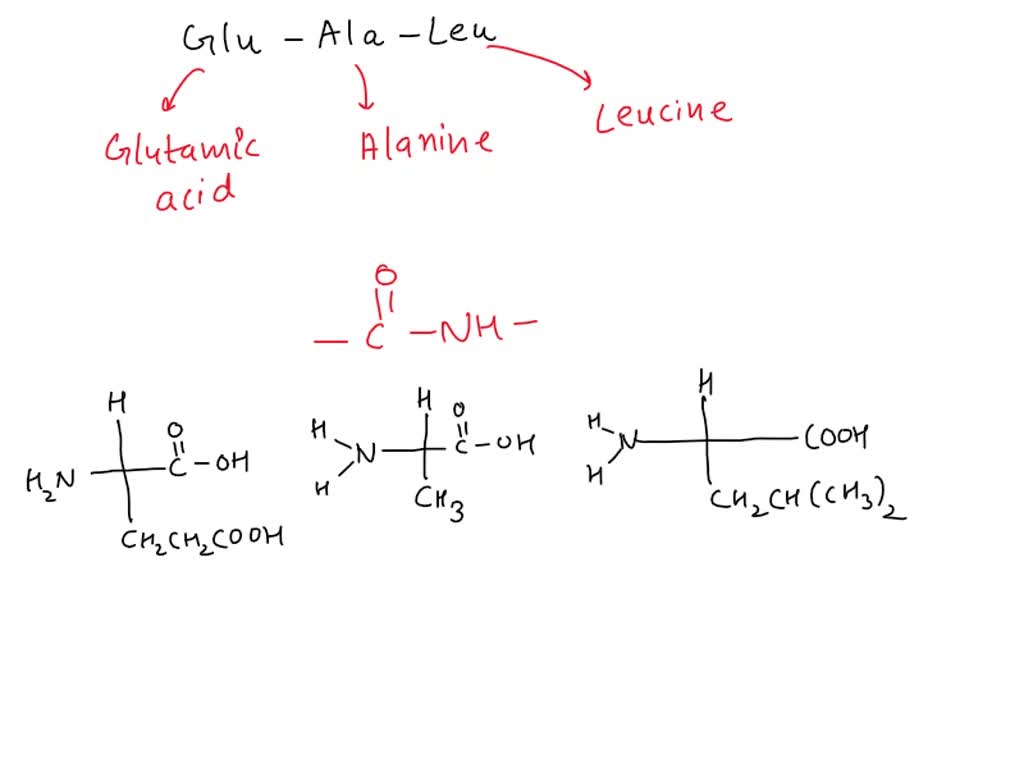 Glu – Ala – Leu
Leucine
Glutamic acid
Alanine
O
— C — NH —
H H H
O O H
H₂N C – OH H N C – OH N COOH
H H
CH₂CH₂COOH CH₃ CH₂CH(CH₃)₂